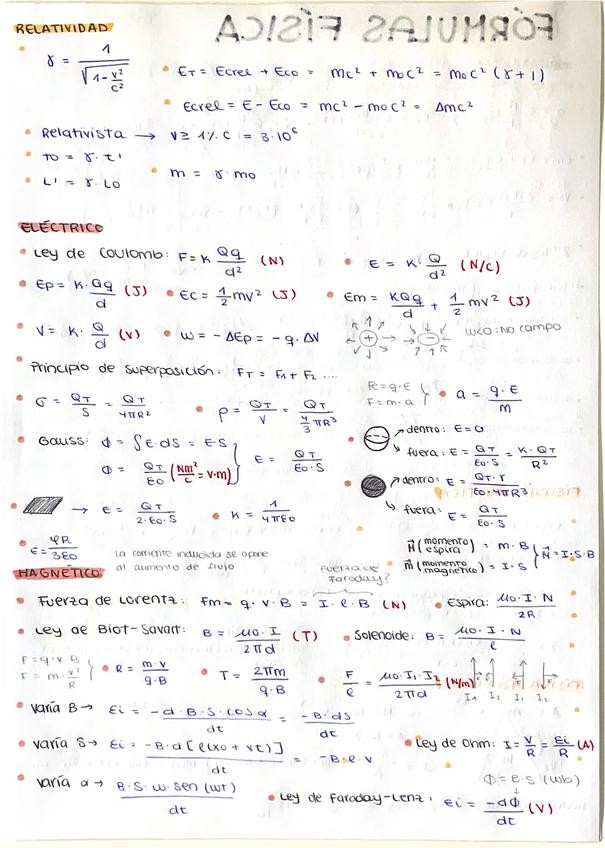 FÓRMULAS FÍSICA
RELATIVIDAD
γ = 1 / √(1 - v²/c²)
ET = Ecrel + Eco = mc² + moc² = moc² (γ + 1)
Ecrel = E - Eco = mc² - moc² = Δmc²
Relativista → V ≥ 1% c = 3·10⁶
to = γ · t'
L' = γ · Lo
m = γ · mo
ELÉCTRICO
Ley de Coulomb: F = K Qq/d² (N)
E = K · Q/d² (N/C)
Ep = K · Qq/d (J)
Ec = 1/2 mv² (J)
Em = KQq/d + 1/2 mv² (J)
V = K · Q/d (V)
W = -ΔEp = -q · ΔV
+ -
W<0: NO campo
Principio de superposición: FT = F1 + F2 ....
Fe = q·E
F = m·a
a = q·E/m
σ = QT/S = QT/4πR²
ρ = QT/V = QT/(4/3 πR³)
Gauss: ϕ = ∫E·dS = E·S
ϕ = QT/εo (Nm²/C = V·m)
E = QT/(εo·S)
dentro: E=0
fuera: E = QT/(εo·S) = K·QT/R²
dentro: E = QT·r/(εo·4πR³)
fuera: E = QT/(εo·S)
→ E = QT/(2·εo·S)
K = 1/(4πεo)
E = φR/3εo
La corriente inducida se opone
al aumento de flujo
M (momento espira) = m·B
m (momento magnético) = I·S
M = I·S·B
MAGNÉTICO
Fuerza de Faraday?
Fuerza de Lorentz: Fm = q · v · B = I · l · B (N)
Espira: μo·I·N/2R
Ley de Biot-Savart: B = μo·I/2πd (T)
Solenoide: B = μo·I·N/l
F = q·v·B
F = m·v²/R
R = m·v/q·B
T = 2πm/q·B
F/l = μo·I1·I2/2πd (N/m)
I1 I2 I1 I2
varía B → Ei = -d·B·S·cosα/dt = -B·dS/dt
varía S → Ei = -B·d[l(xo + vt)]/dt = -B·l·v
Ley de Ohm: I = V/R = Ei/R (A)
ϕ = B·S (Wb)
varía α → B·S·w·sen(wt)/dt
Ley de Faraday-Lenz: Ei = -dϕ/dt (V)